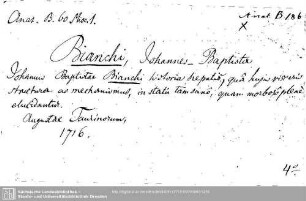 Anat. B. 60
Anat B 186
X
Bianchi, Johannes Baptista
Johannis Baptistae Bianchi historia hepatica, quâ hujus visceris
structura ac mechanismus, in statu tam sano, quam morboso plene
elucidantur.
Augustae Taurinorum,
1716.
4°
Sächsische Landesbibliothek -
Staats- und Universitätsbibliothek Dresden